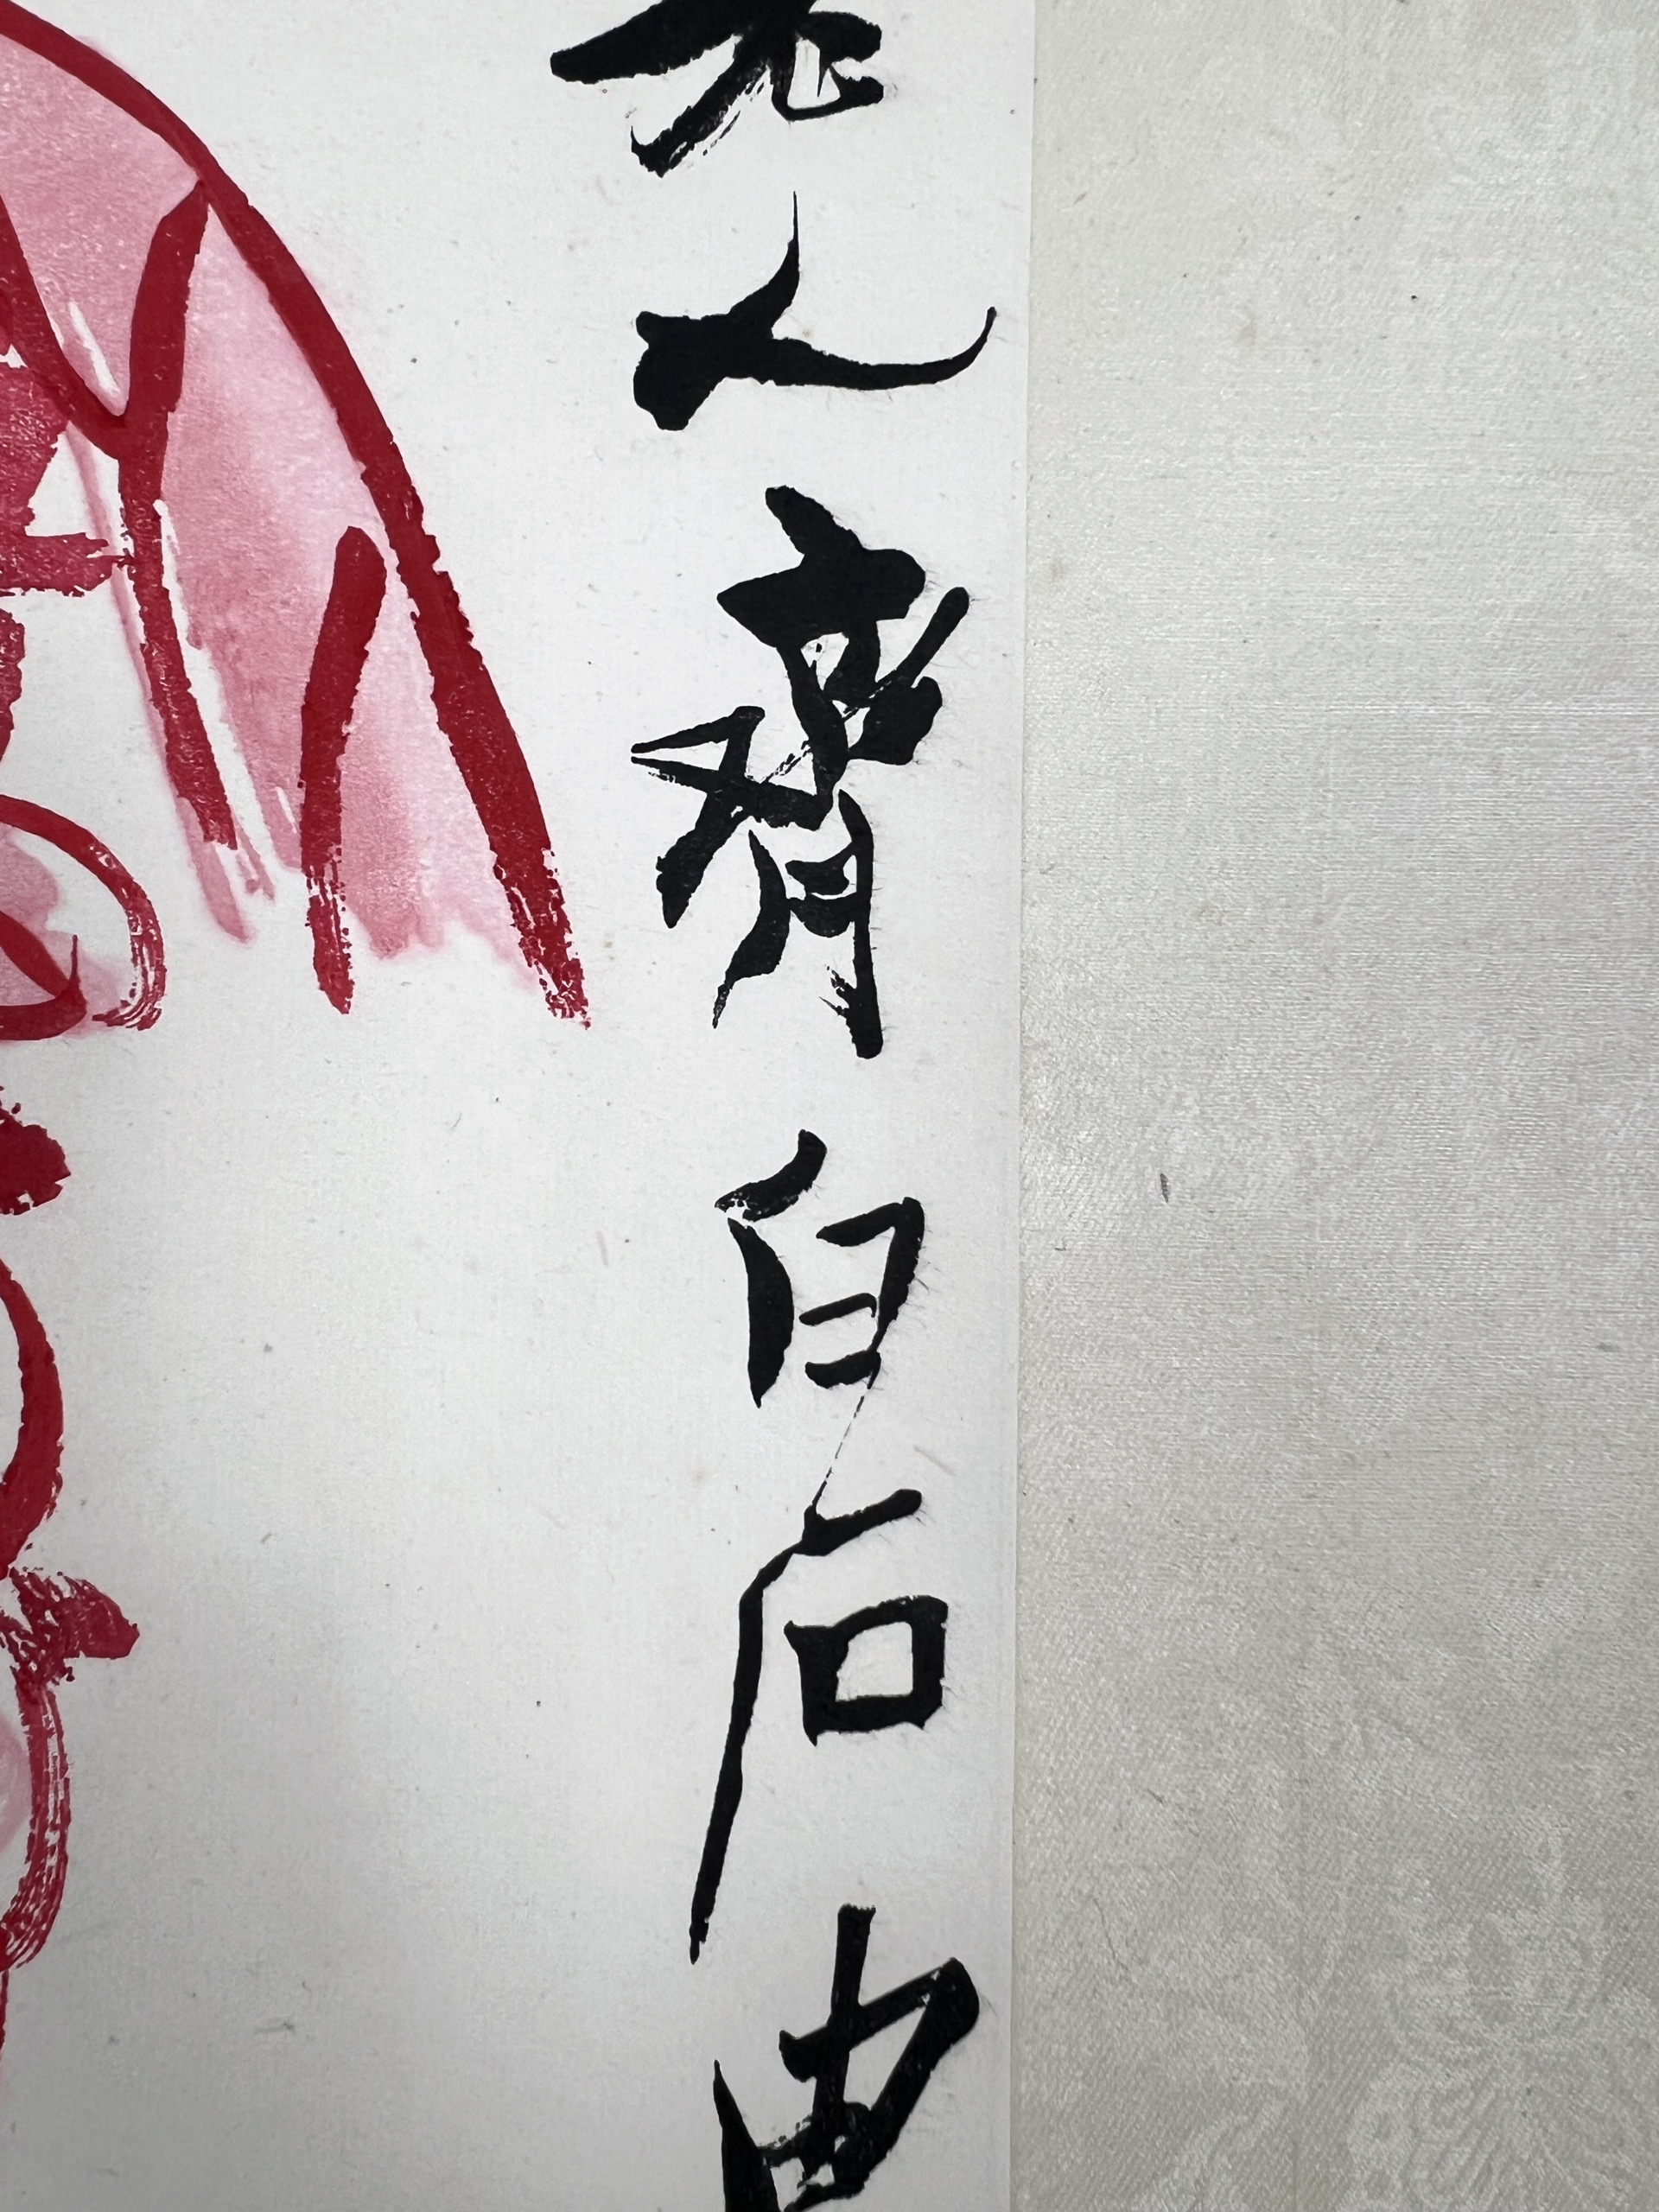 老人齊白石由